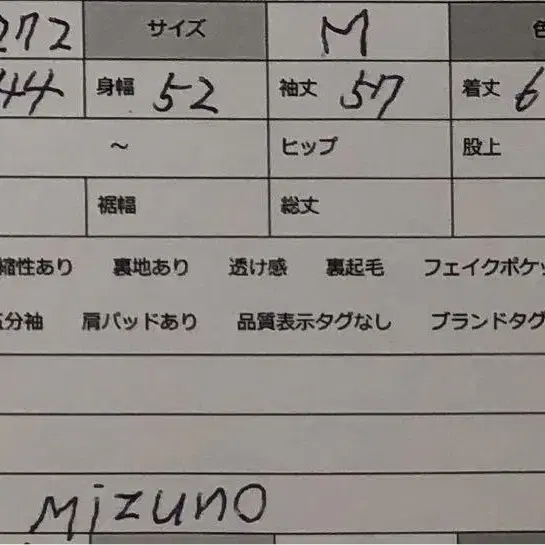 272 サイズ M 色
44 身幅 52 袖丈 57 着丈 6
~ ヒップ 股上
裾幅 総丈
縮性あり 裏地あり 透け感 裏起毛 フェイクポケッ
五分袖 肩パッドあり 品質表示タグなし ブランドタグ
Mizuno